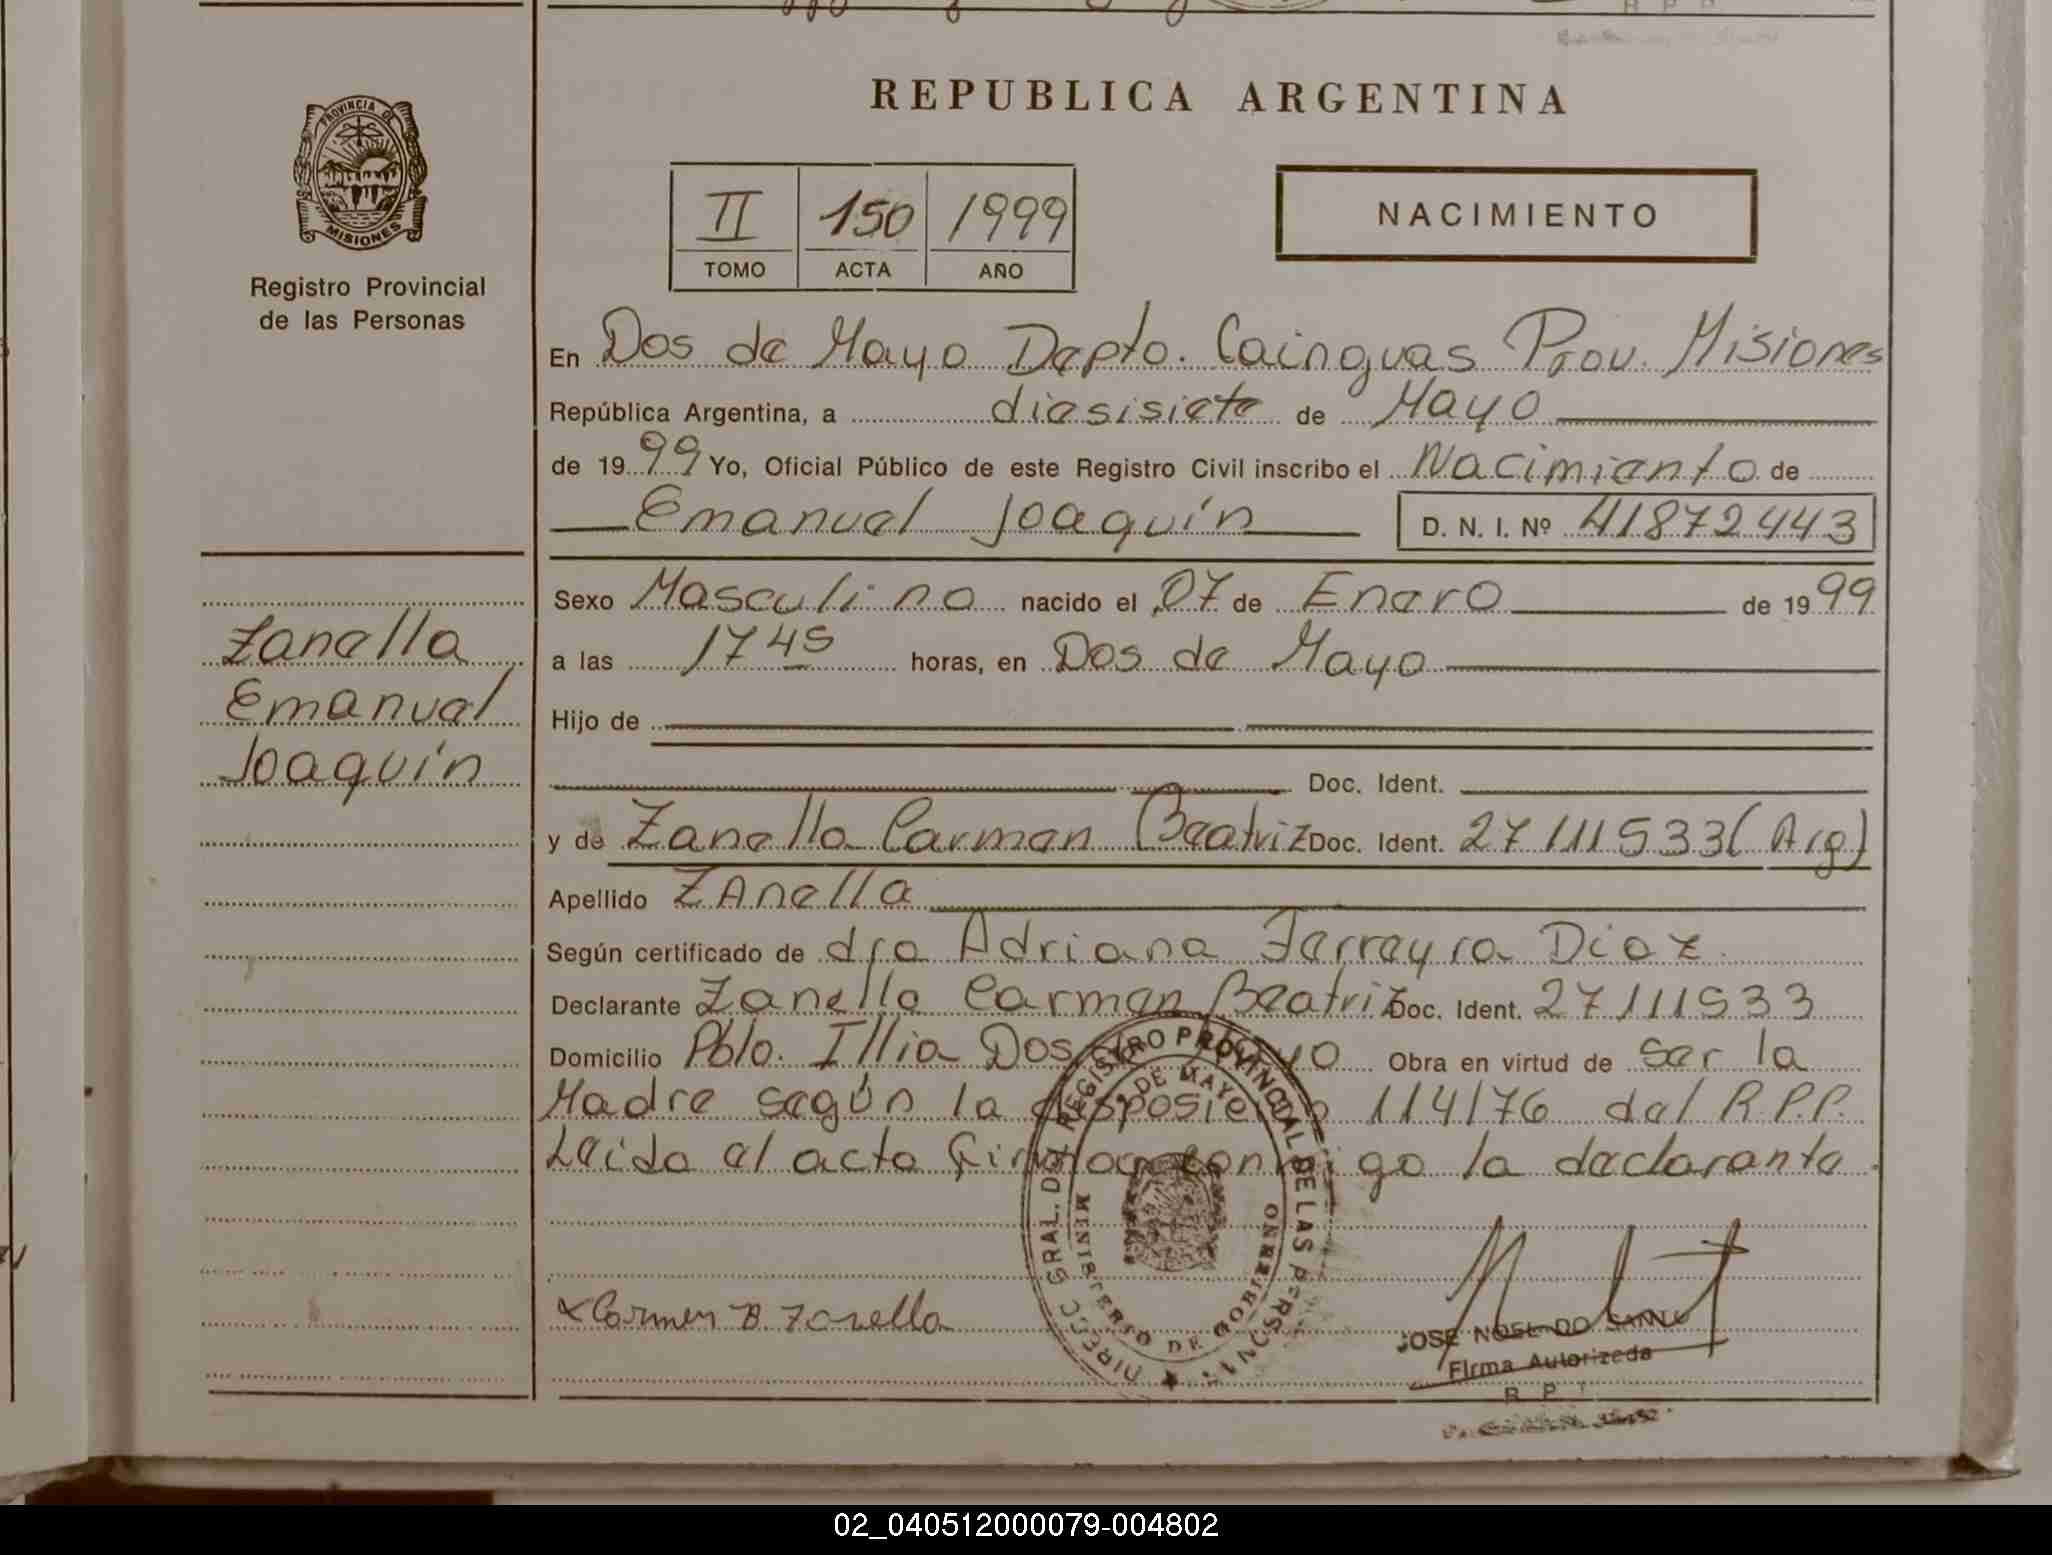 REPUBLICA ARGENTINA
PROVINCIA DE
MISIONES
Registro Provincial
de las Personas
II 150 1999
TOMO ACTA AÑO
NACIMIENTO
En Dos de Mayo Depto. Cainguas Prov. Misiones
República Argentina, a diesisiete de Mayo
de 1999 Yo, Oficial Público de este Registro Civil inscribo el Nacimiento de
Emanuel Joaquín D. N. I. Nº 41872443
Sexo Masculino nacido el 07 de Enero de 1999
a las 17 45 horas, en Dos de Mayo
Hijo de
Doc. Ident.
y de Zanella Carmen Beatriz Doc. Ident. 27111533 (Arg)
Apellido ZAnella
Según certificado de dra Adriana Ferreyra Diaz
Declarante Zanella Carmen Beatriz Doc. Ident. 27111533
Domicilio Pblo. Illia Dos de Mayo Obra en virtud de ser la
Madre según la disposición 114/76 del R.P.P.
Leida el acta firma conmigo la declarante.
Zanella
Emanuel
Joaquín
Carmen B. Zanella
DIRECC GRAL. DEL REGISTRO PROVINCIAL DE LAS PERSONAS
DE MAYO
MINISTERIO DE GOBIERNO
JOSE NOEL DO
Firma Autorizada
02_040512000079-004802